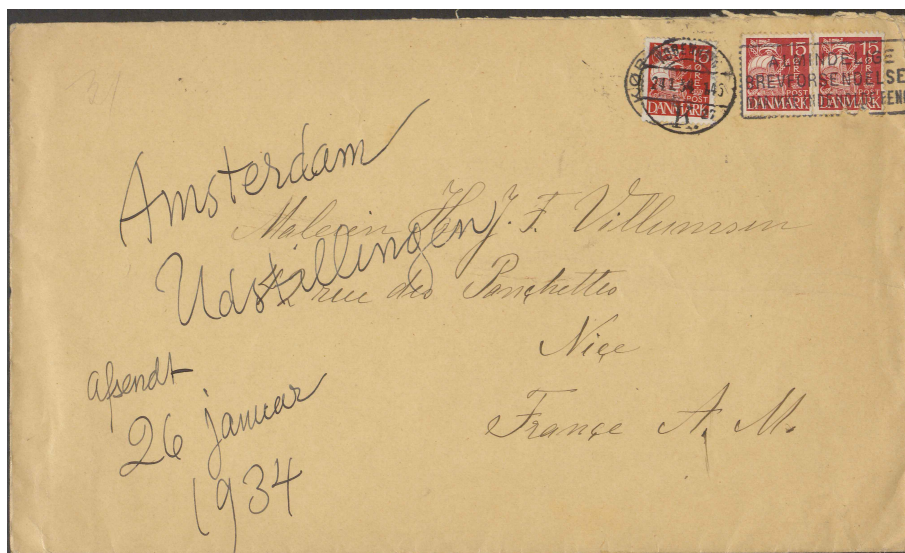 15 ØRE POST DANMARK
15 ØRE POST DANMARK
15 ØRE POST DANMARK
ALMINDELIGE
BREVFORSENDELSE
Amsterdam
Udstillingen
Maleren Hr J. F. Villumsen
rue des Ponchettes
Niçe
Françe A. M.
afsendt
26 januar
1934